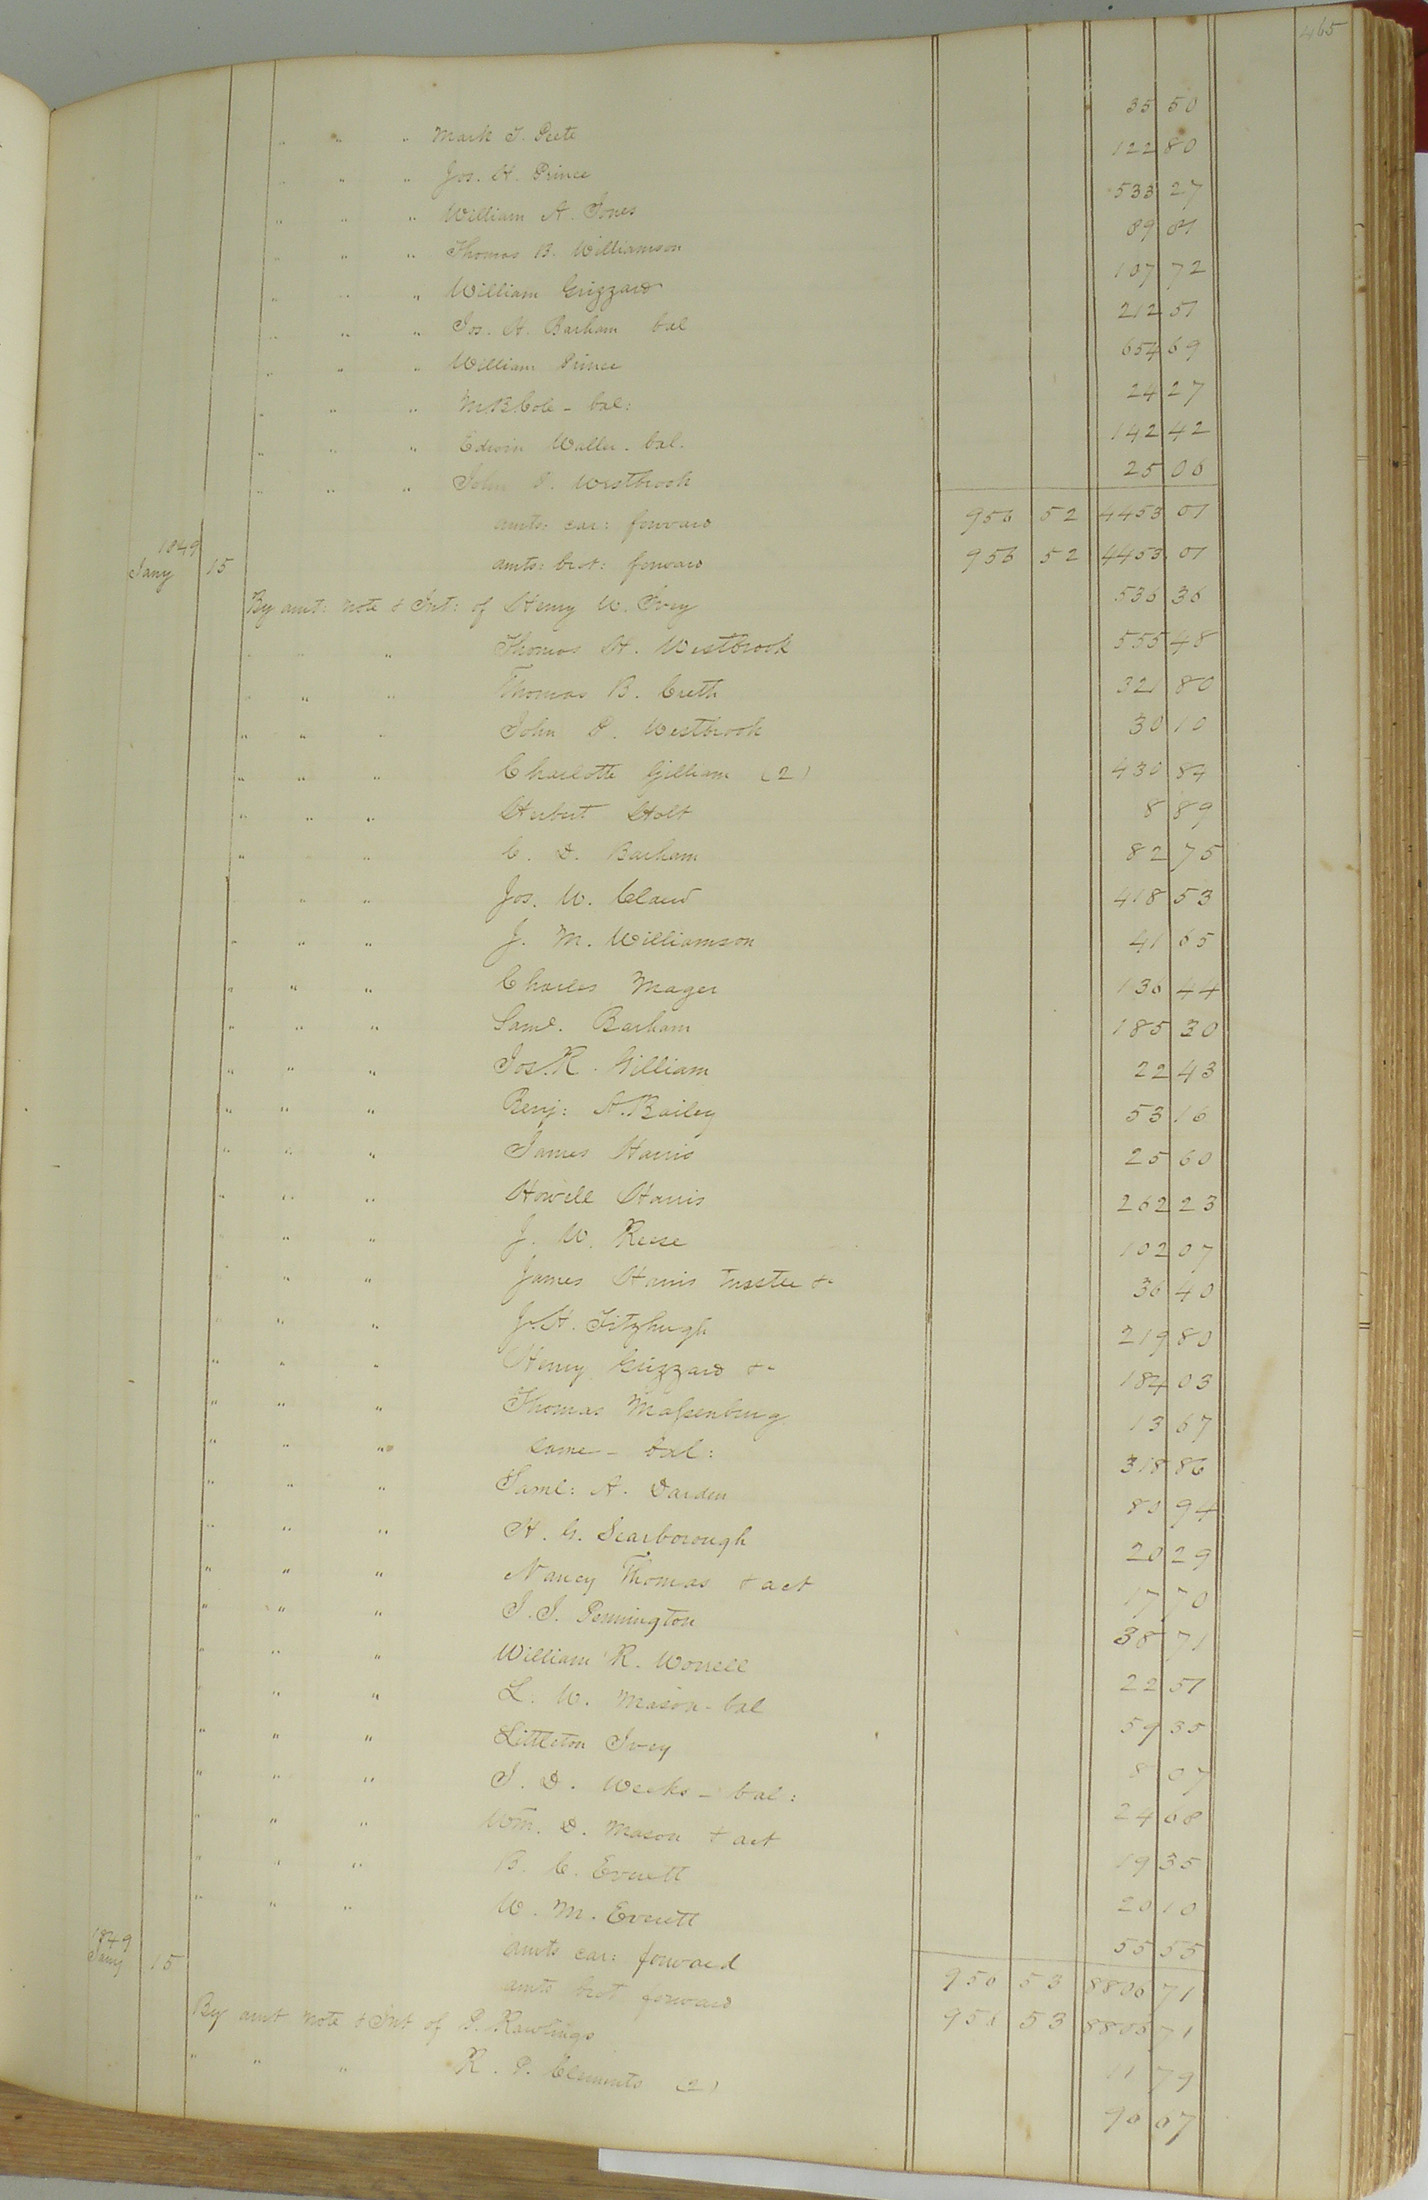 465
" " " Mark J. Peete 35 50
" " " Jos. H. Prince 122 80
" " " William A. Jones 533 27
" " " Thomas B. Williamson 89 07
" " " William Grizzard 107 72
" " " Jos. H. Barham bal 212 51
" " " William Prince 654 69
" " " M B Cole - bal: 24 27
" " " Edwin Waller - bal. 142 42
" " " John P. Westbrook 25 06
amts: car: forward 956 52 4453 01
1849
Jany 15 amts: brot: forward 956 52 4453 01
By amt: note & Int: of Henry W. Ivey 536 36
" " " Thomas H. Westbrook 555 48
" " " Thomas B. Creth 321 80
" " " John P. Westbrook 30 10
" " " Charlotte Gilliam (2) 430 84
" " " Herbert Holt 8 89
" " C. D. Barham 82 75
" " Jos. W. Claud 418 53
" " " J. M. Williamson 41 65
" " " Charles Mager 130 44
" " " Saml. Barham 185 30
" " " Jos. R. Gilliam 22 43
" " " Benj: A. Bailey 53 16
" " " James Harris 25 60
" " " Howell Harris 262 23
" " J. W. Reese 102 07
" " " James Harris trustee &c 36 40
" " " J. H. Fitzhugh 219 80
" " " Henry Grizzard &c 184 03
" " " Thomas Massenburg 13 67
" " " same - bal: 318 86
" " " Saml: A. Darden 80 94
" " " H. G. Scarborough 20 29
" " " Nancy Thomas & act 17 70
" " " J. J. Pennington 38 71
" " " William R. Worrell 22 51
" " L. W. Mason - bal 59 35
" " " Littleton Ivey 8 07
" " " J. D. Weeks - bal: 24 08
" " " Wm. D. Mason & act 19 35
" " " B. C. Everett 20 10
" " " W. M. Everett 55 55
amts car: forward 956 53 8806 71
1849
Jany 15 amts brot forward 956 53 8806 71
By amt note & Int of P. Rawlings 11 79
" " " R. P. Clements (2) 90 07